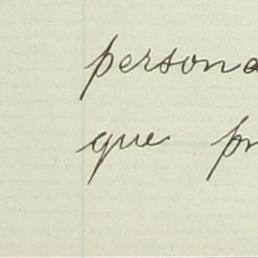 persona
que pr